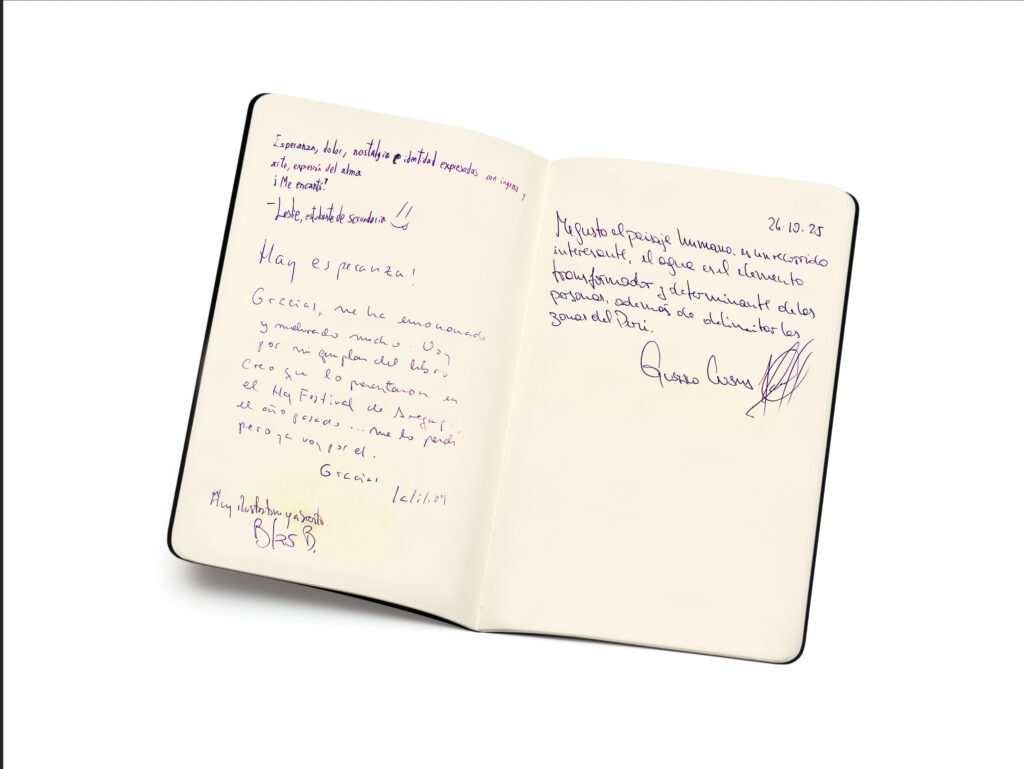 Esperanza, dolor, nostalgia e identidad expresadas con ingenio y
arte, expresión del alma
¡Me encantó!
- Leste, estudiante de secundaria
Hay esperanza!
Gracias, me ha emocionado
y mucho. Voy
por mi del libro
Creo que lo presentaron en
el Hay Festival de Arequipa
el año pasado... me lo perdí
pero ya voy por el.
Gracias
Muy ilustrativo y
Blas B.
26.10.25
Me gusto el paisaje humano, es un recorrido
interesante, el agua es el elemento
transformador y determinante de las
personas, además de delimitar las
zonas del Perú.